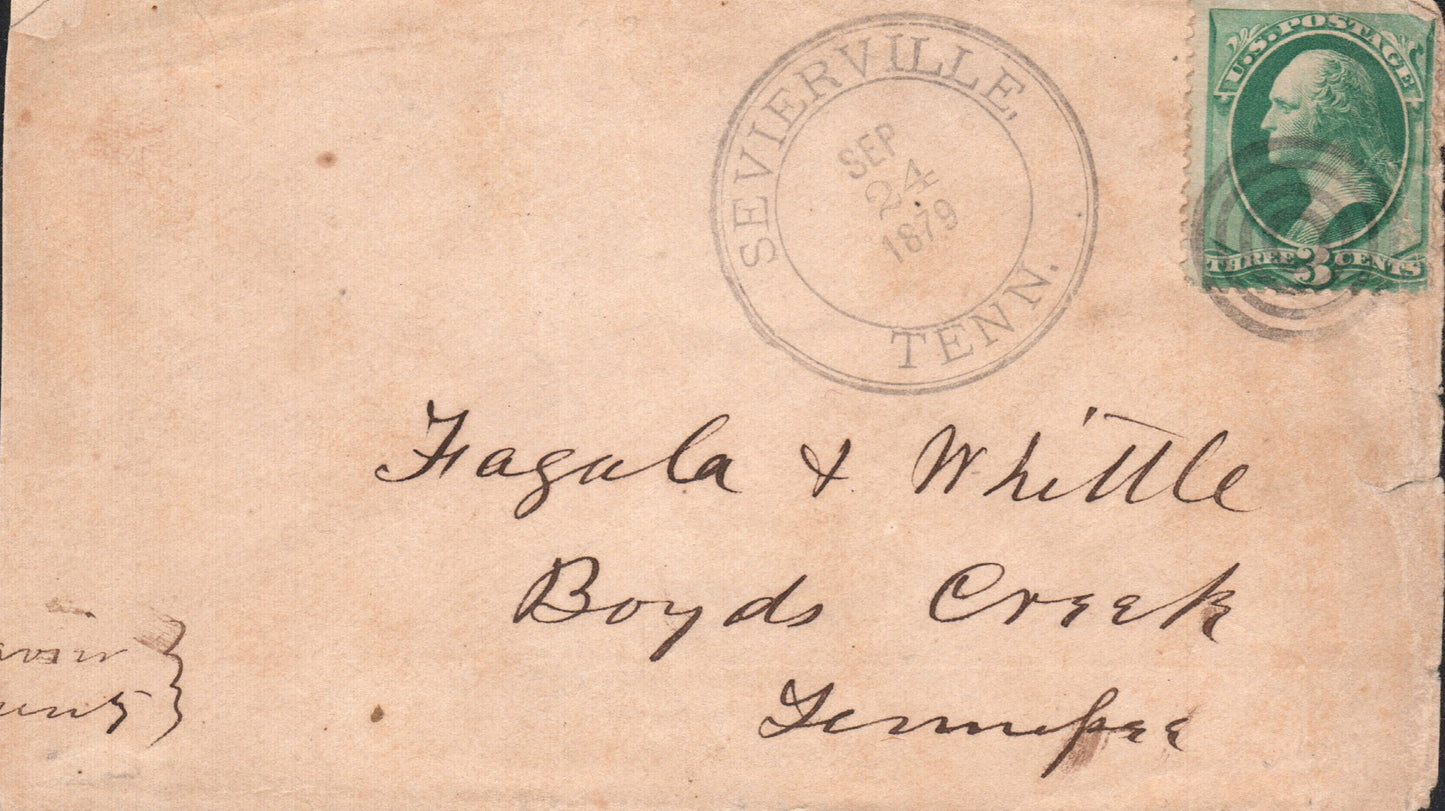 SEVIERVILLE, TENN.
SEP
24
1879
U.S. POSTAGE
THREE 3 CENTS
Fagala & Whittle
Boyds Creek
Tennessee